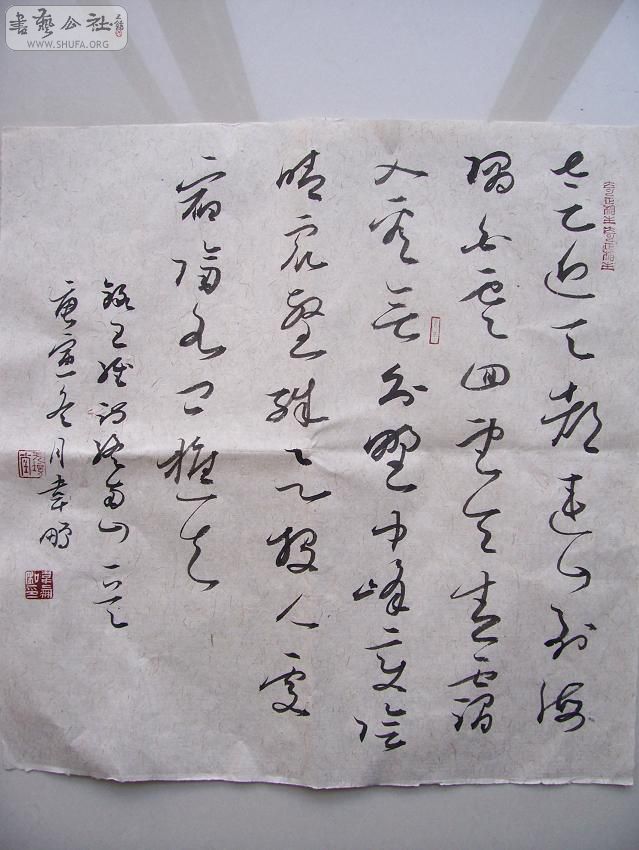 書藝公社
WWW.SHUFA.ORG
太乙近天都連山到海
隅白雲迴望合青靄
入看無分野中峰變陰
晴眾壑殊欲投人處
宿隔水問樵夫
錄王維詩終南山一首
庚寅冬月韋鵬